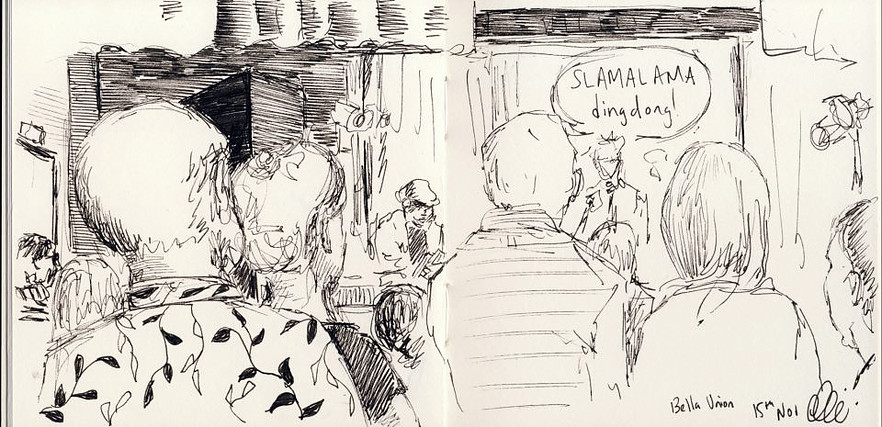 SLAMALAMA
dingdong!
Bella Union 15th Nov